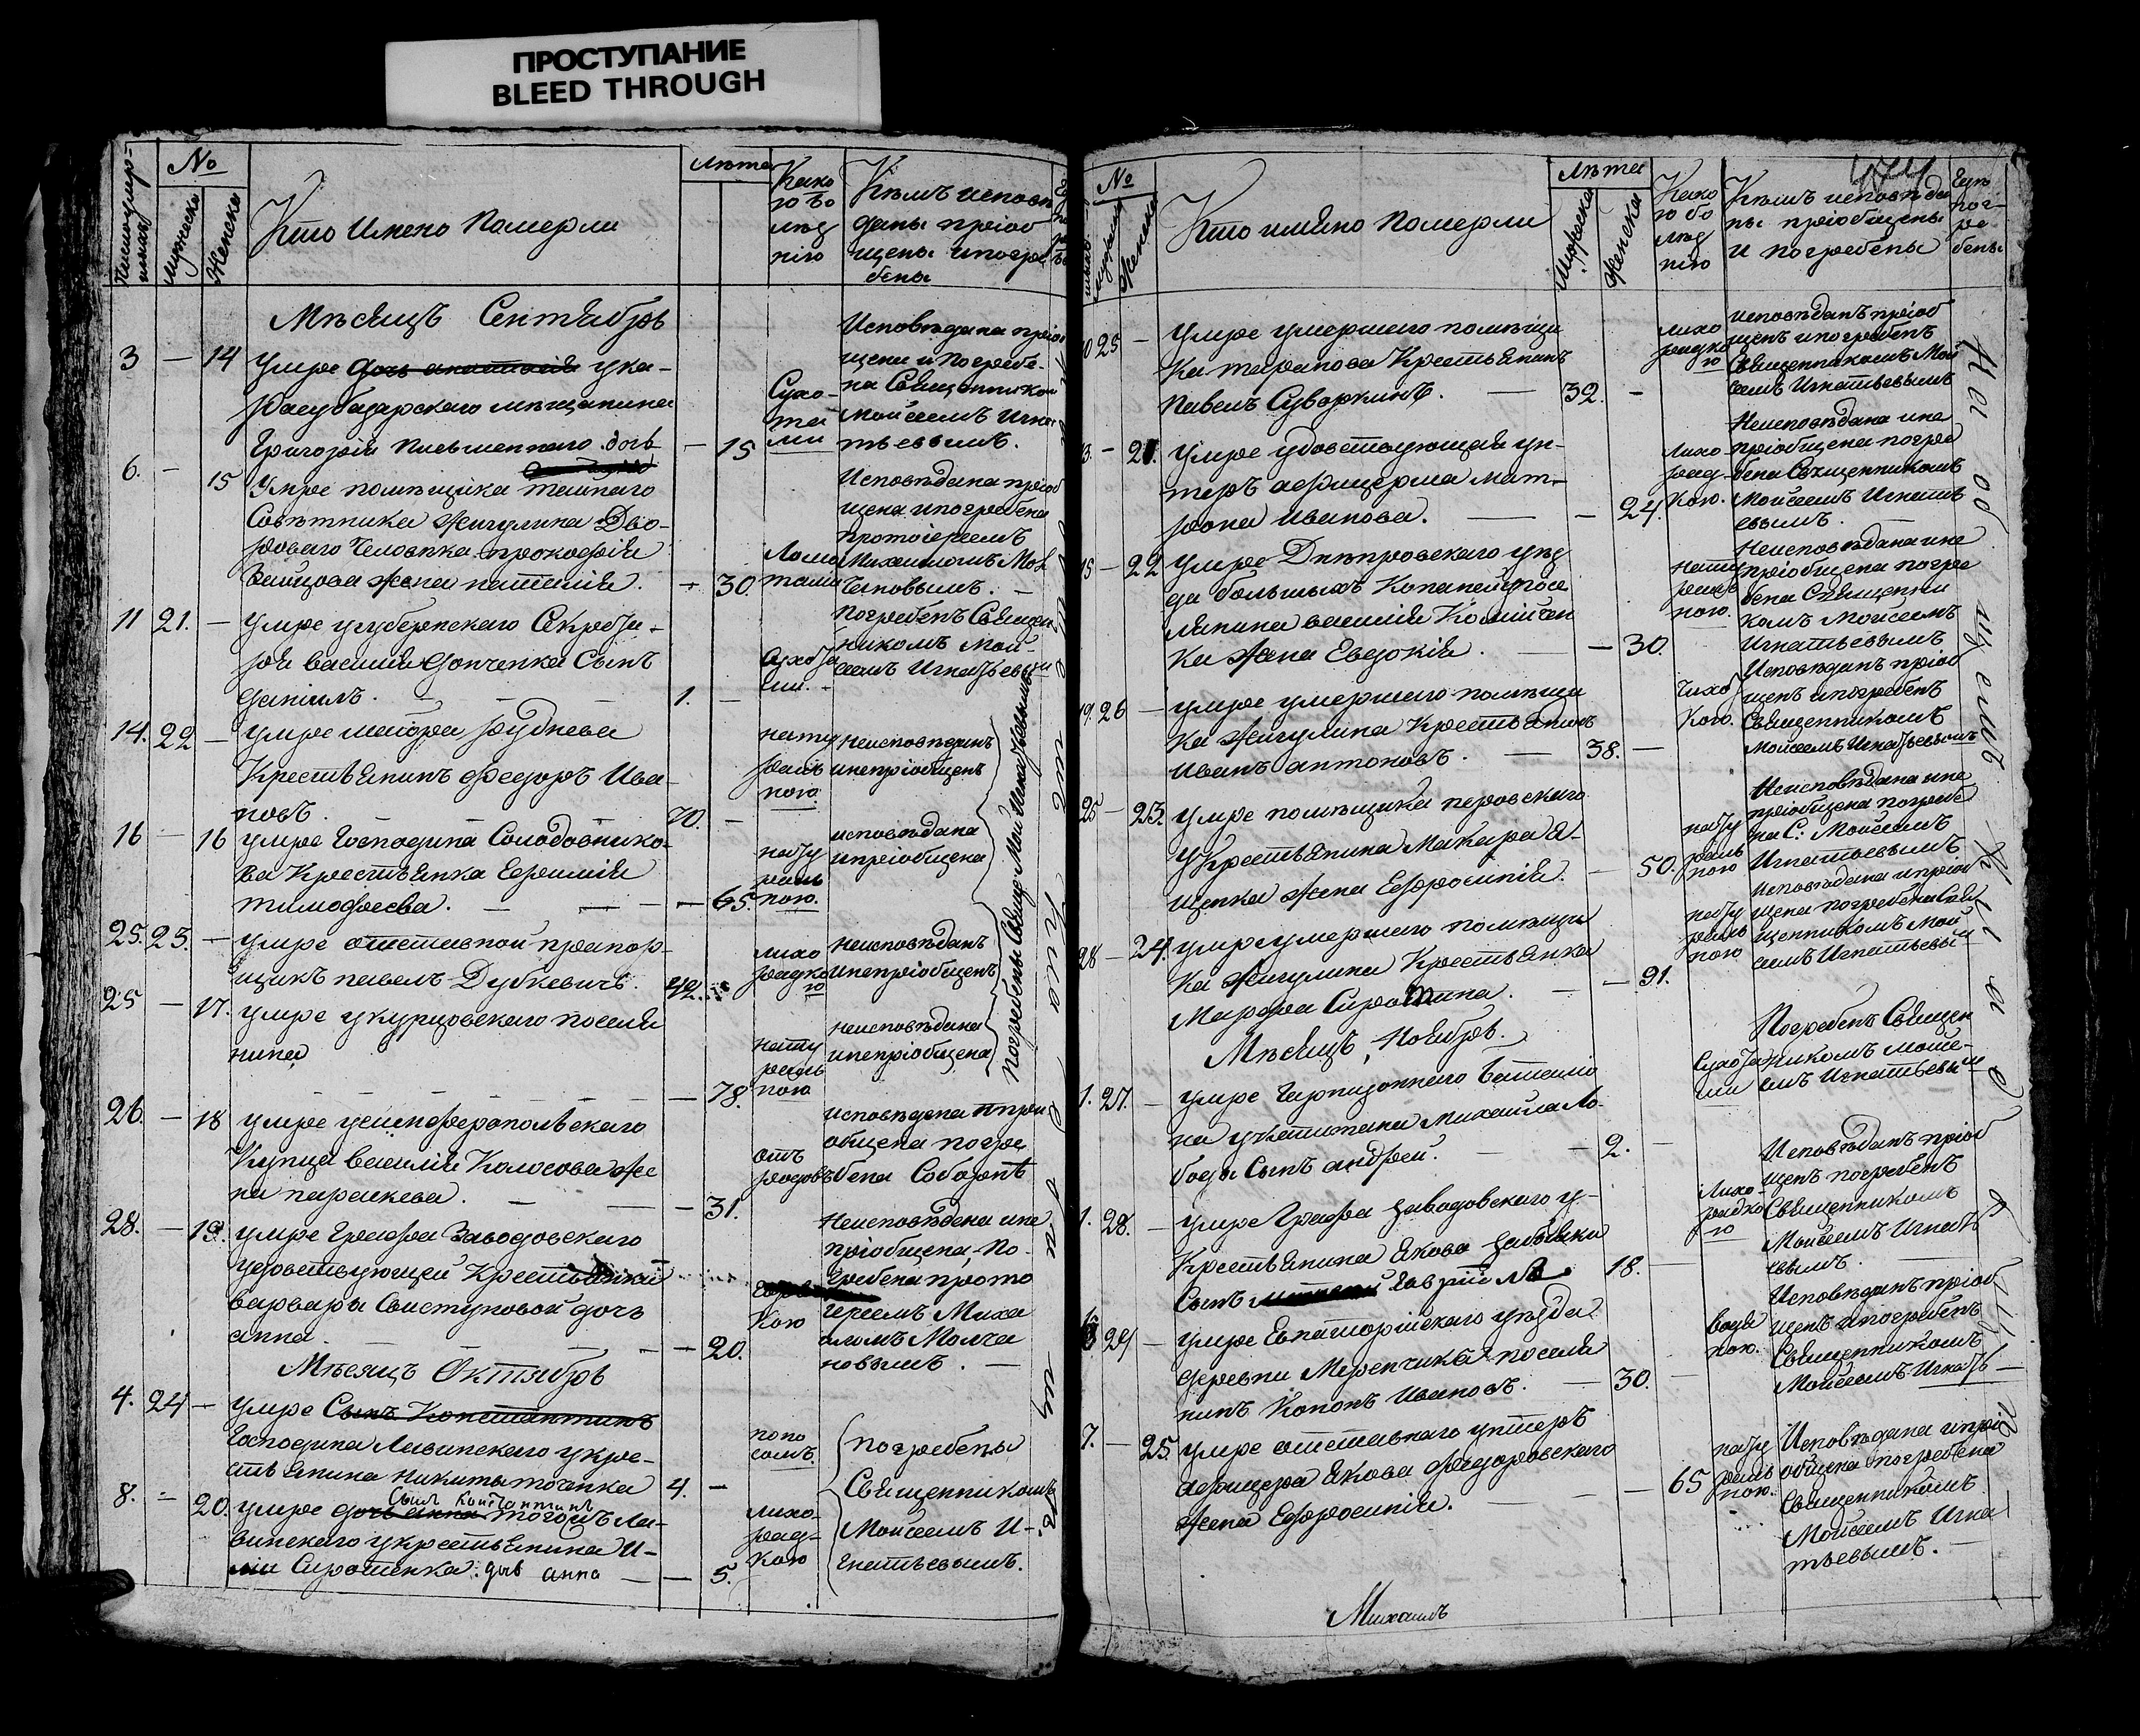 ПРОСТУПАНИЕ
BLEED THROUGH
№
Мужеска
Женска
Кто имено Померли
лѣта
Како
ю бо
лѣз
нію
Кѣмъ исповѣ
даны пріоб
щены и погре
бены
Мѣсяцъ Сентябрь
3 — 14 Умре дочь анастасія у ка-
расубазарскаго мѣщанина
Григорія Письменнаго дочь — 15
Сухо-
та
ми
Исповѣдана пріоб
щена и Погребе-
на Священником
Мойсеем Игна
тьевымъ.
6. — 15 Умре помѣщика тайнаго
Совѣтника Жигулина Дво-
роваго Человѣка прокофія
жена наталія. — 30.
Исповѣдана пріоб
щена и погребена
протоіереемъ
Михаиломъ Мол
чановымъ. —
11 21. — Умре у губернскаго Секрета-
ря василія Гонченка Сынъ
Даніилъ. 1. —
Сухота
ми. -
Погребенъ Священ
никомъ Мой-
сеемъ Игнатьевым
14. 22 — Умре маіора Руднева
Крестьянинъ Федоръ Ива
новъ. 70. —
нату
раль
ною.
неисповѣданъ
и непріобщенъ
16 — 16 умре Господина Солодовнико-
ва Крестьянка Евфимія
тимофеева. — 65.
нату
раль
ною.
исповѣдана
и пріобщена
25. 23. — умре отставной прапор-
щикъ павелъ Дубкевичъ. 42.
лихо
радко
ю
неисповѣданъ
и непріобщенъ
25 — 17. умре у курцовскаго поселя
нина — 78.
нату
раль
ною
неисповѣдана
и непріобщена
Погребены Свящ: Мой: Игнатьевымъ
26. — 18 умре у симферопольскаго
Купца василія Колосова же
на параскева. — 31.
отъ
родовъ
исповѣдана и при
общена погре
бена Соборнѣ
28. — 19. умре Графа Заводовскаго
Крестьянки
варвары Свистуновой дочь
анна. — 20.
Неисповѣдена и не
пріобщена, По-
гребена прото
іереемъ Миха
иломъ Молча
новымъ. —
Мѣсяцъ Октябрь
4. 24 — умре Сынъ Константинъ
Господина Ливинскаго у кре-
стьянина никиты точенка 4. —
поно
сомъ.
погребены
8. — 20. умре дочь анна тогожъ Ли-
Сынъ Константинъ
винскаго у крестьянина И-
ліи Сиротенка: дочь анна — 5.
лихо-
рад-
кою
Священникомъ
Мойсеемъ И-
гнатьевымъ.
№
Кто имяно Померли
лѣта
Мужеска
Женска
Како
ю бо
лѣз
нію
Кѣмъ исповѣда
ны пріобщены
и погребены
Гдѣ
пог-
ре
бены
25 — умре умершаго помѣщи
ка таранова Крестьянинъ
Павелъ Суворкинъ. — 32. —
лихо
радко
ю
исповѣданъ пріоб
щенъ и погребенъ
Священникомъ Мой
сеемъ Игнатьевымъ
— 21. умре ун-
теръ афицерша Мат-
рона иванова. — 24.
Лихо
рад
кою.
Неисповѣдана и не
пріобщена погре
бена Священникомъ
Мойсеемъ Игнать
евымъ.
— 22 умре Днѣпровскаго уѣз
да большихъ Копаней посе
лянина василія
жена Евдокія. — 30.
нату
раль
ною.
Неисповѣдана и не
пріобщена погре
бена Священни
комъ Мойсеемъ
Игнатьевымъ
19. 26 — умре умершаго помѣщи
ка Жигулина Крестьянинъ
Иванъ антоновъ. — 38. —
Исповѣданъ пріоб
щенъ и погребенъ
Священникомъ
Мойсеемъ Игнатьевымъ
25 — 23. умре помѣщика перовскаго
у Крестьянина Макара
жена Ефросинія. — 50.
нату
раль
ною
Неисповѣдана и не
пріобщена погребе
на С: Мойсеемъ
Игнатьевымъ
28 — 24. умре умершаго помѣщи
ка Жигулина Крестьянка
Марфа Сиротина. — 91.
нату
раль
ною
исповѣдана и пріоб
щена погребена Свя
щенникомъ Мой
сеемъ Игнатьевым
Мѣсяцъ Ноябрь.
1. 27. — умре Гарнизоннаго баталио
на у капитана Михаила Ло-
боды Сынъ андрей. — 2. —
Сухота
ми
Погребенъ Священ
никомъ Моисе-
емъ Игнатьевым
1. 28. — умре Графа Заводовскаго у-
Крестьянина Якова
Сынъ Гавріилъ 18. —
Лихо-
радко
ю
Исповѣданъ пріоб
щенъ погребенъ
Священникомъ
Мойсеемъ Игнать
евымъ.
29 — умре Евпаторійскаго уѣзда
деревни поселя
нинъ Кононъ Ивановъ. — 30. —
водя
ною.
Исповѣданъ пріоб
щенъ и погребенъ
Священникомъ
Мойсеемъ Игнать —
7. — 25. умре отставнаго унтеръ
афицера Якова Федоровскаго
жена Ефросинія. — 65
нату
раль
ною.
Исповѣдана и прі
общена погребена
Священникомъ
Мойсеемъ Игна
тьевымъ. —
Михаилъ